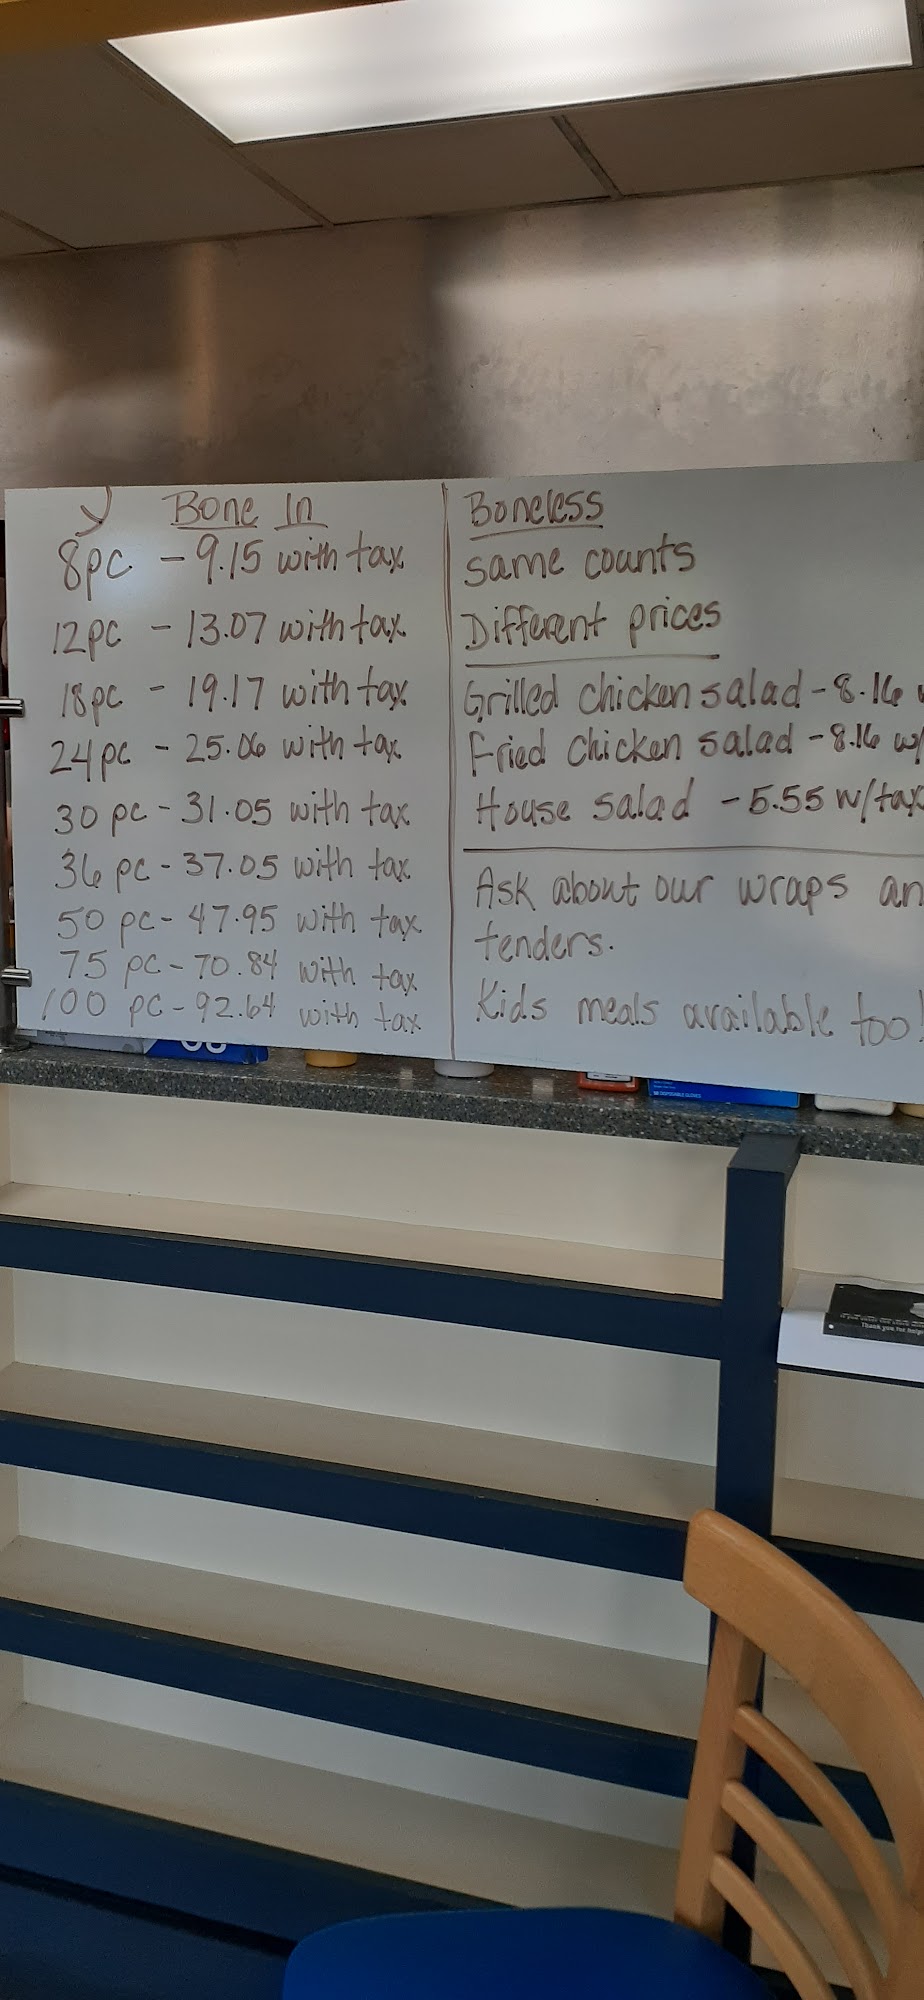 Bone In
8pc - 9.15 with tax
12pc - 13.07 with tax
18pc - 19.17 with tax
24pc - 25.06 with tax
30 pc - 31.05 with tax
36 pc - 37.05 with tax
50 pc - 47.95 with tax
75 pc - 70.84 with tax
100 pc - 92.64 with tax
Boneless
same counts
Different prices
Grilled chicken salad - 8.16
Fried chicken salad - 8.16 w/
House salad - 5.55 w/tax
Ask about our wraps an
tenders.
Kids meals available too!
Thank you for help